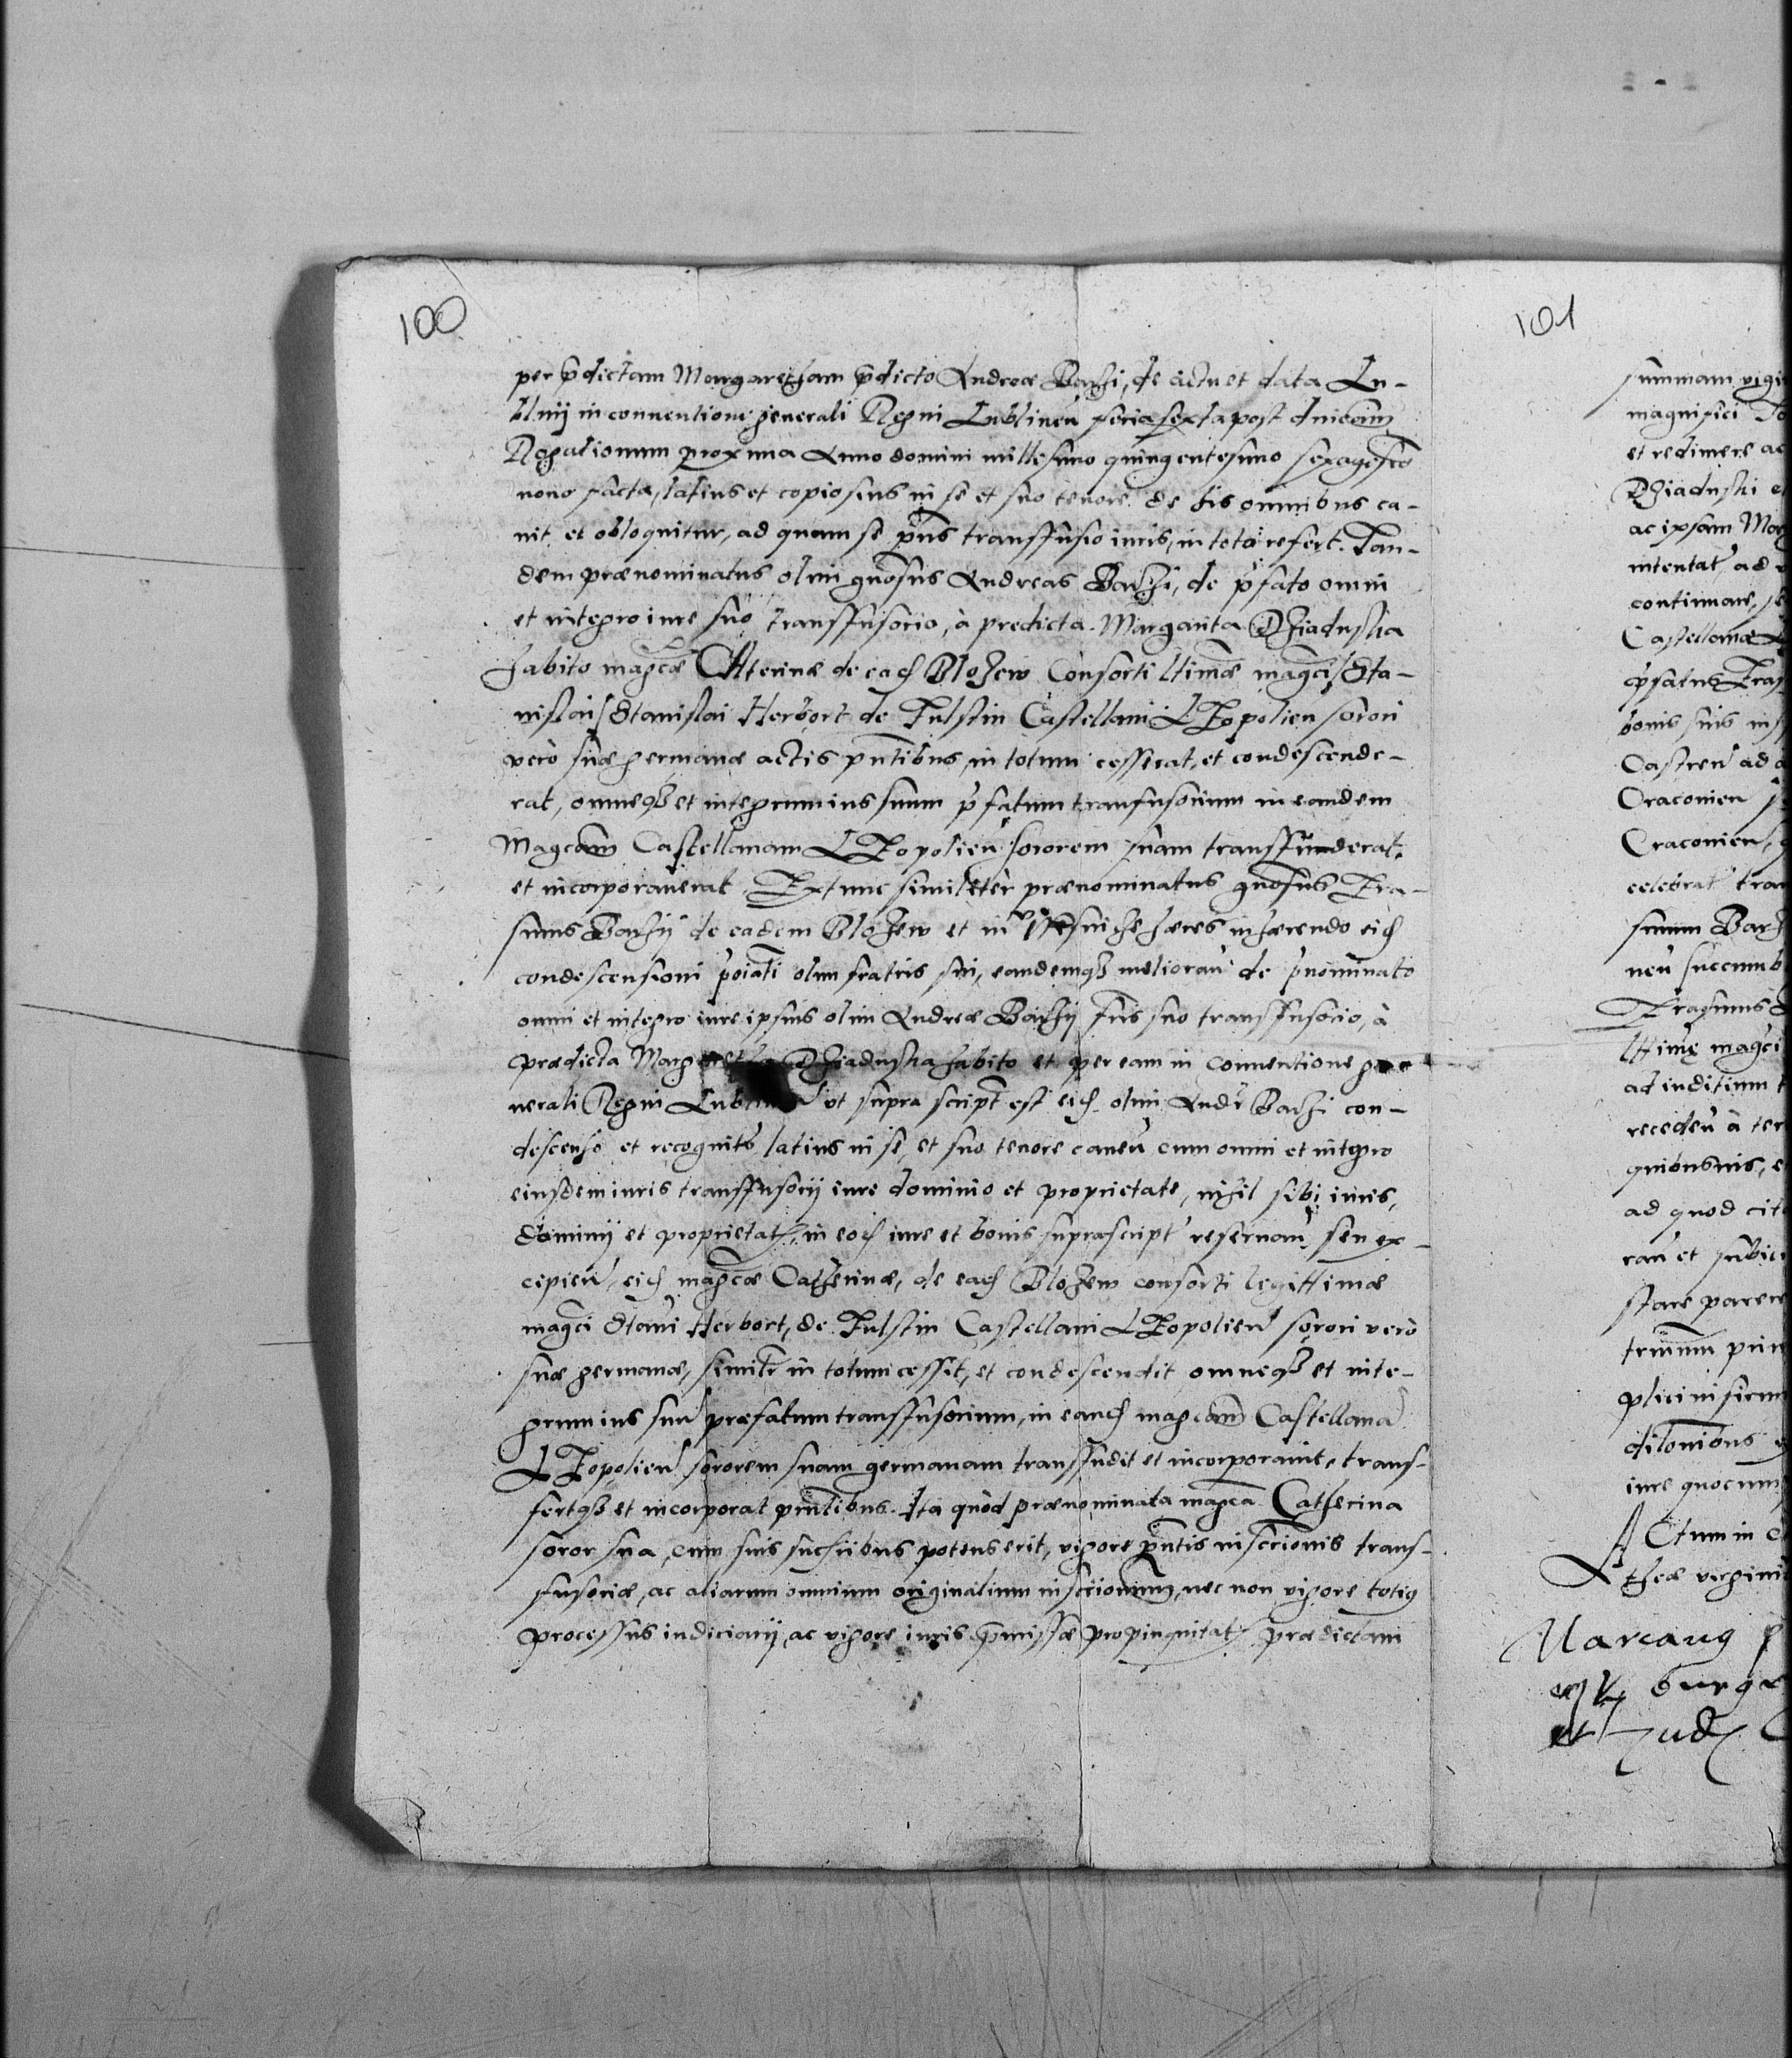 100
per p̄dictam Margaretham p̄dicto Andreæ Barzi, de actu et data Lu-
blinij in conuentione generali Regni Lublineñ feria sexta post dnicam
Rogationum proxima Anno domini millesimo quingentesimo sexagesīo
nono facta, latius et copiosius in se et suo tenore de his omnibus ca-
nit et obloquitur, ad quam se p̄ns transffusio iuris, in toto refert. Tan-
dem prænominatus olim gnosus Andreas Barzi, de p̄fato omni
et integro iure suo transffusorio, à predicta Margarita Dziaduska
habito magcæ Catterinæ de eadē Blozew Consorti ltimæ magci Sta-
nislai Stanislai Herbort de Fulstin Castellani LEopolien sorori
verò suæ germanæ actis pn̄tibus, in totum cesserat, et condescende-
rat, omneqȝ et integrum ius suum p̄fatum transfusorium in eandem
Magcam Castellanam LEopolieñ sororem suam transffunderat,
et incorporauerat. Extunc similiter prænominatus gnosus Era-
smus Barzij de eadem Blozew et in hæres inhærendo eidē
condescensioni olim fratris sui, eandemqȝ melioran̄ de p̄nominato
omni et integro iure ipsius olim Andreæ Barzij fr̄is suo transffusorio, à
prædicta Dziaduska habito et per eam in Conuentione ge-
nerali Regni ut supra script̄ est eidē olim Andr̄ Barzi con-
descenso et recognito, latius in se, et suo tenore caneñ cum omni et integro
eiusdem iuris transffusorij iure dominio et proprietate, nihil sibi iuris,
dominij et proprietatꝭ, in eodē iure et bonis supræscript̄ reseruan̄ seu ex-
cipien̄, eidē magcæ Catherinæ, de eadē Blozew consorti legittimæ
magci Stani Herbort, de Fulstin Castellani LEopolieñ sorori verò
suæ germanæ, similr̄ in totum cessit, et condescendit omneqȝ et inte-
grum ius suū præfatum transffusorium, in eandē magcam Castellanā
LEopolieñ sororem suam germanam transfudit et incorporauit, trans-
fertqȝ et incorporat pn̄tibus. Ita quòd prænominata magca Catherina
soror sua, cum suis succibus potens erit, vigore p̄ntis inscrionis trans-
fusoriæ, ac aliarum omnium originalium inscrionum, nec non vigore totiꝰ
processus iudiciarij, ac vigore iuris p̄missæ propinquitatꝭ prædictam
101
summam
magnifici
et redimere
Dziaduski
ac ipsam
intentat̄ ad
continuare,
Castellanæ
p̄fatus
bonis suis
Castreñ ad
Cracouien
Cracouien,
celebrat̄
smum
neñ
Erasmus
lttimę magci
ad iuditium
recedeñ à
quibusuis,
ad quod
rañ et
stare parere
trinum
plici
ditionibus
iure
ACtum in
theæ virginis
burgr
et Judꝭ